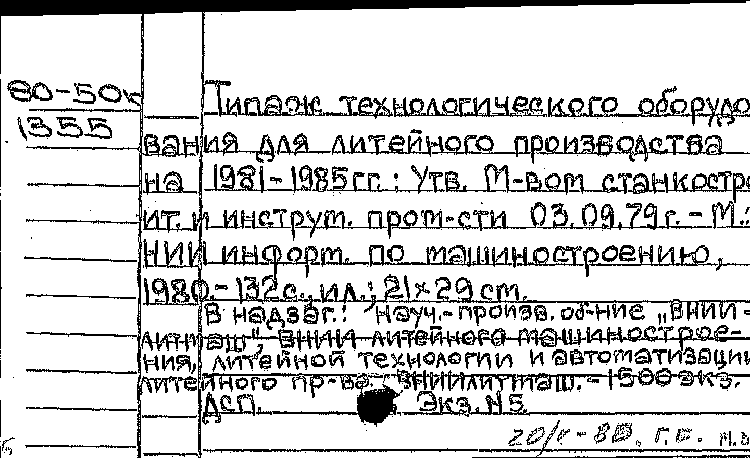 80-50к
1355
Типаж технологического оборудо
вания для литейного производства
на 1981-1985гг.: Утв. М-вом станкостро
ит. и инструм. пром-сти 03.09.79г.- М.:
НИИ информ. по машиностроению,
1980.-132с., ил.; 21×29 cm.
В надзаг.: Науч.-произв. об-ние „ВНИИ-
литмаш", ВНИИ литейного машинострое-
ния, литейной технологии и автоматизации
литейного пр-ва. ВНИИлитмаш.-1500экз.
ДСП. Экз.N5.
20/ г.